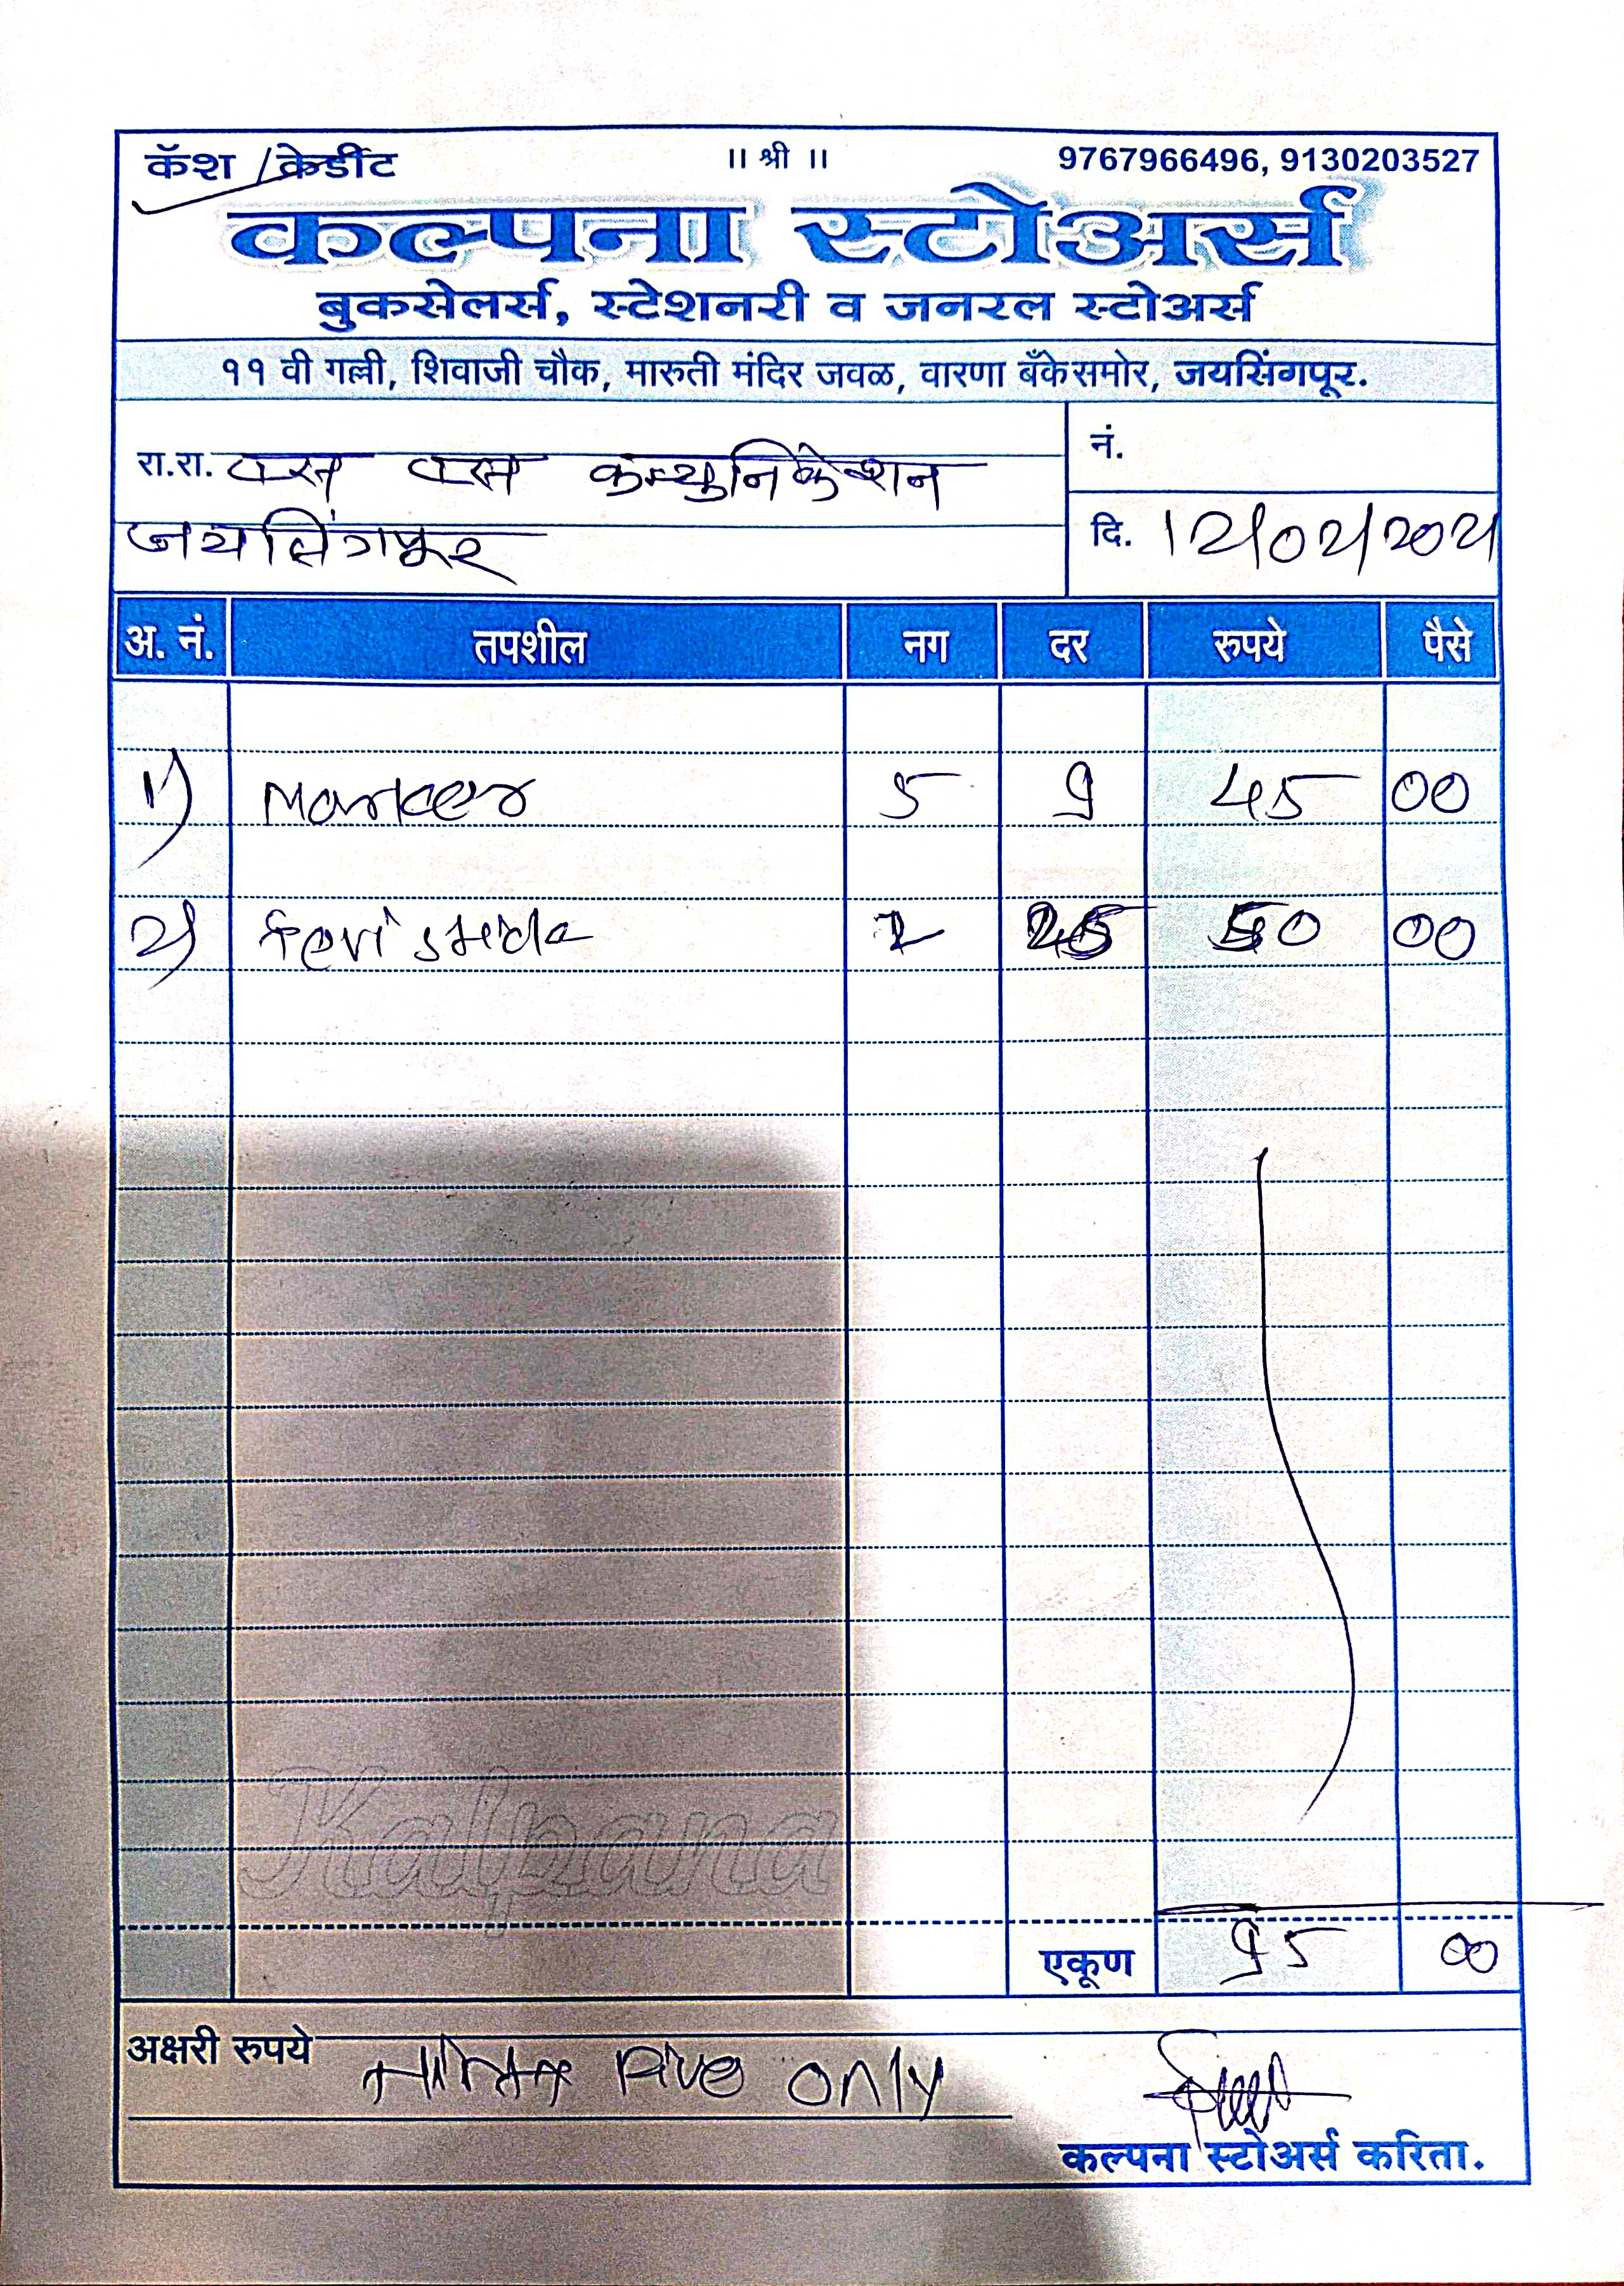 कॅश / क्रेडीट
॥ श्री ॥
9767966496, 9130203527
कल्पना स्टोअर्स
बुकसेलर्स, स्टेशनरी व जनरल स्टोअर्स
११ वी गल्ली, शिवाजी चौक, मारुती मंदिर जवळ, वारणा बँकेसमोर, जयसिंगपूर.
रा.रा. एस एस कम्युनिकेशन
जयसिंगपूर
नं.
दि. 12/02/2021
अ. नं. तपशील नग दर रुपये पैसे
1) Marker 5 9 45 00
2) fevi stick 2 25 50 00
Kalpana
एकूण 95 00
अक्षरी रुपये Five only
कल्पना स्टोअर्स करिता.